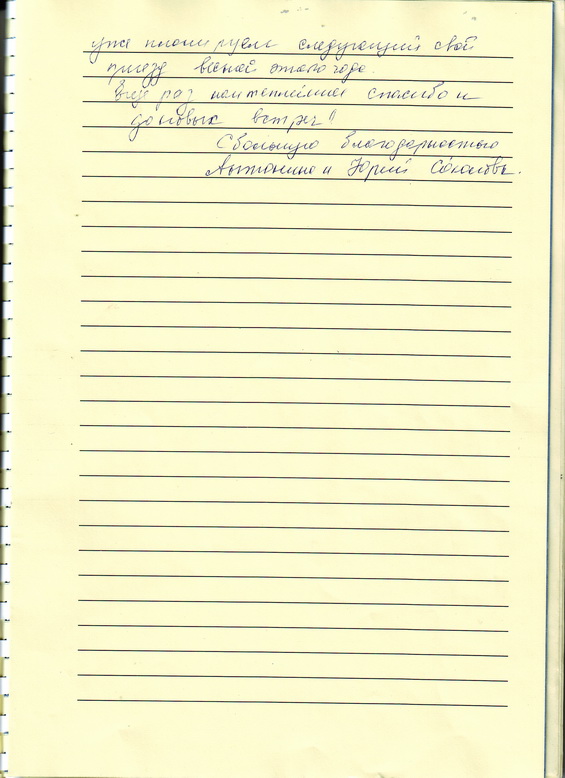 уже планируем следующий свой
приезд весной этого года.
Еще раз наитеплейшее спасибо и
до новых встреч!
С большую благодарностью
Антонина и Юрий Соколовы.